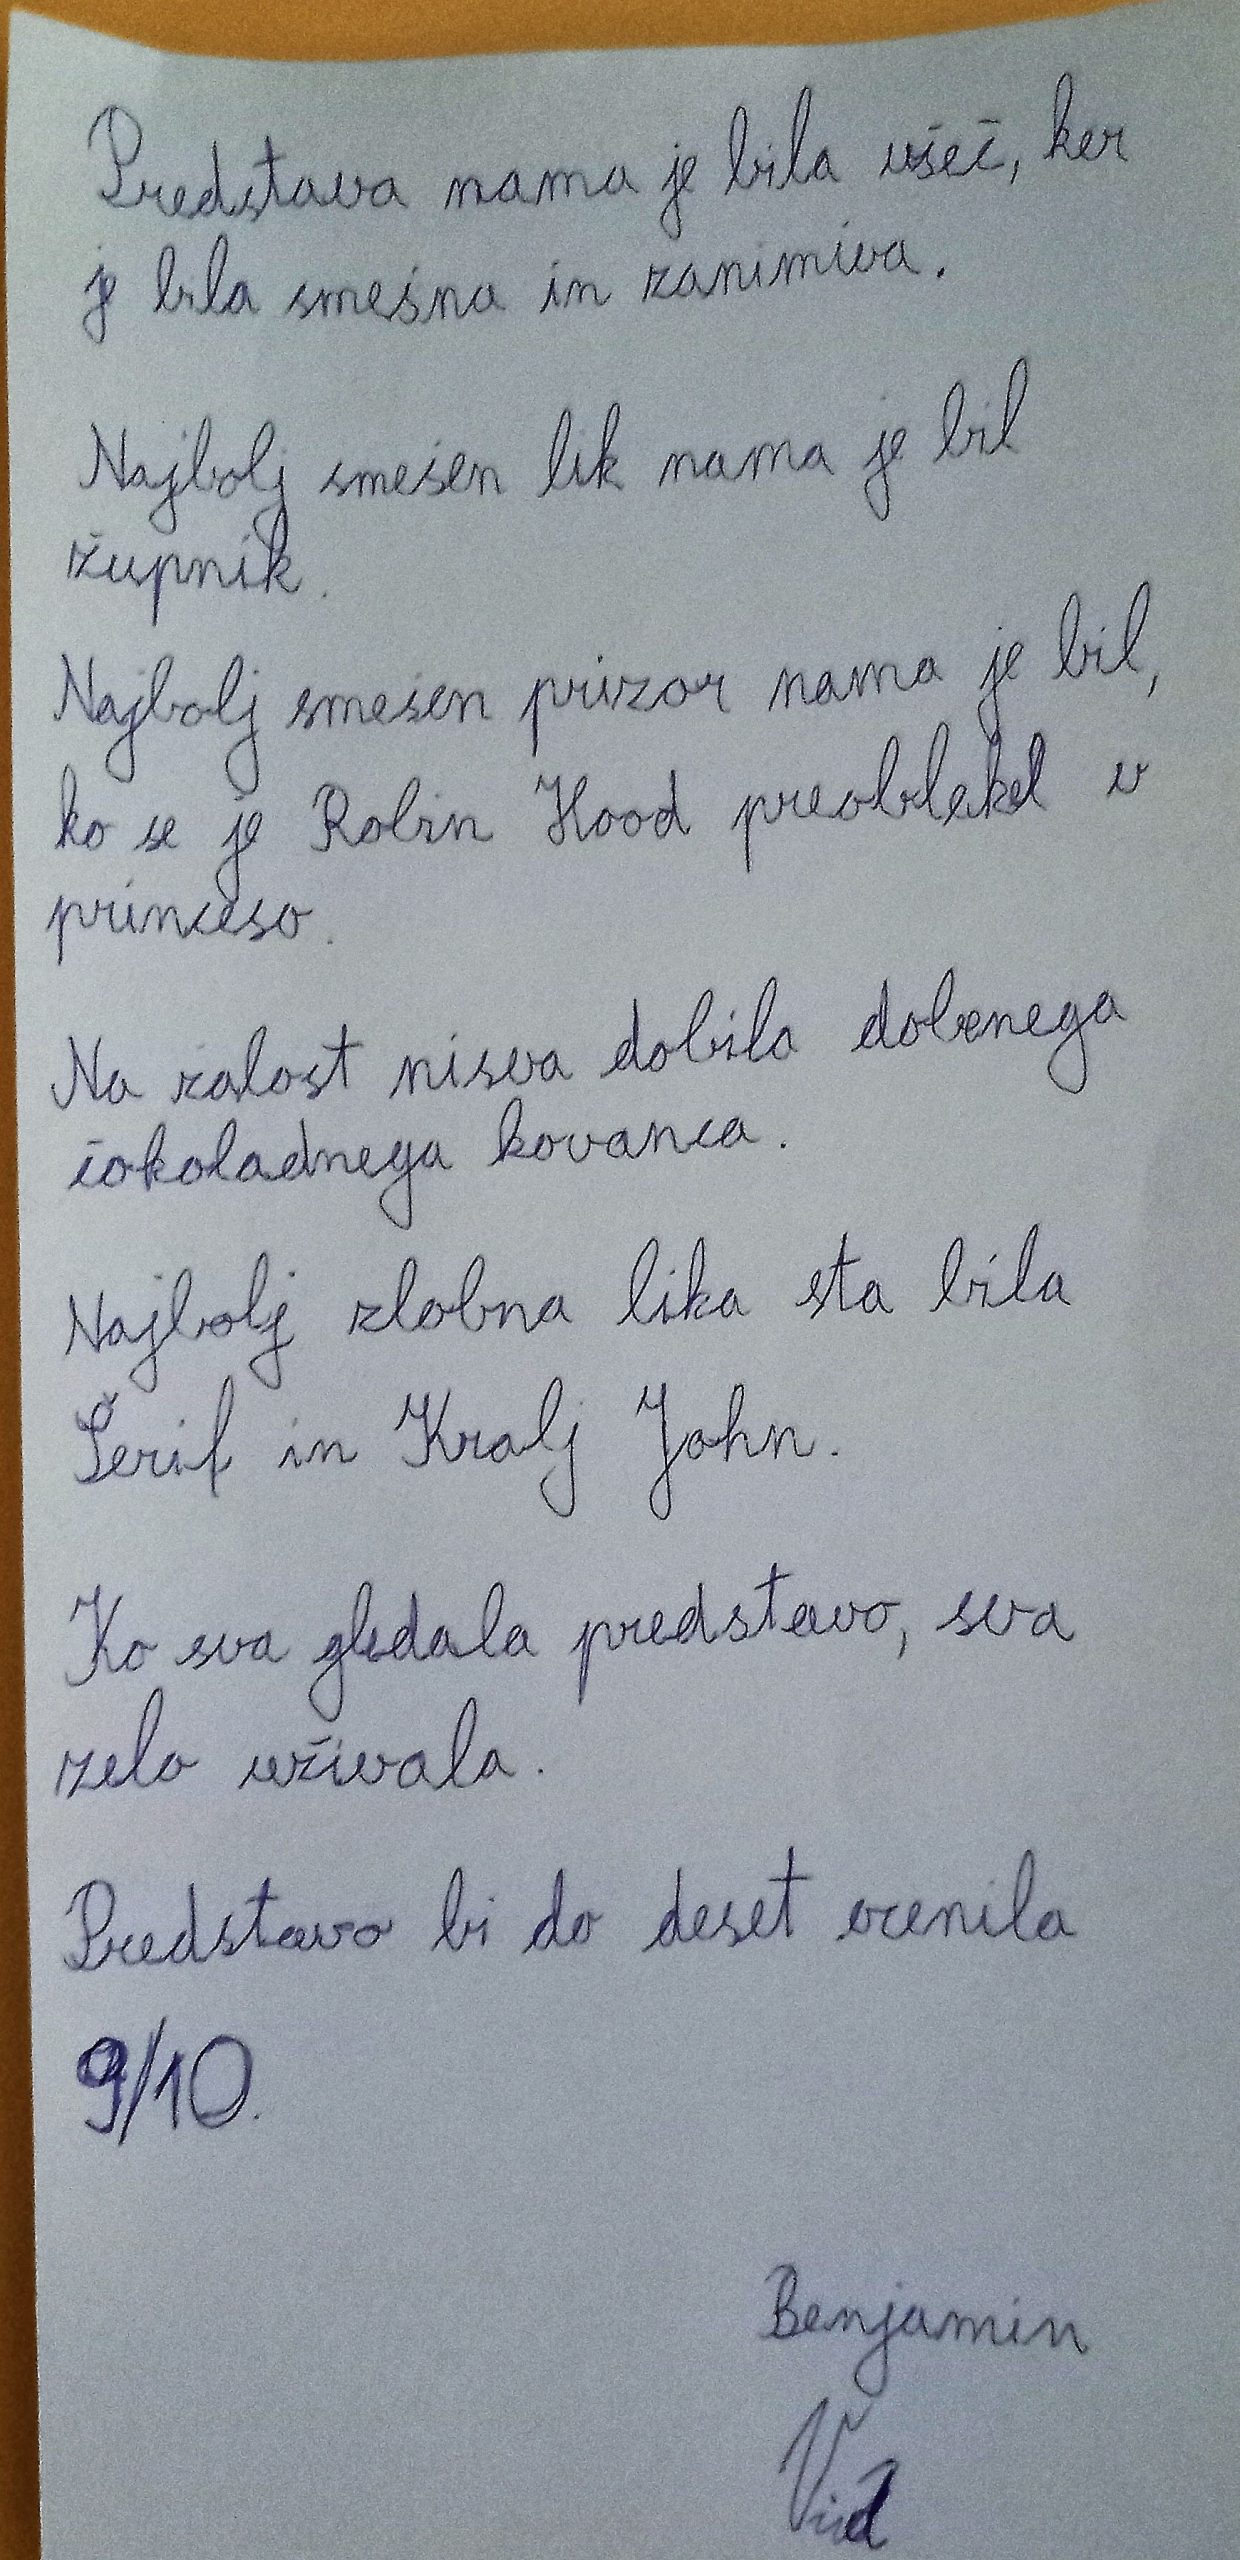 Predstava nama je bila všeč, ker
je bila smešna in zanimiva.
Najbolj smešen lik nama je bil
župnik.
Najbolj smešen prizor nama je bil,
ko se je Robin Hood preoblekel v
princeso.
Na žalost nisva dobila dobenega
čokoladnega kovanca.
Najbolj zlobna lika sta bila
Šerif in Kralj John.
Ko sva gledala predstavo, sva
zelo uživala.
Predstavo bi do deset ocenila
9/10.
Benjamin
Vid